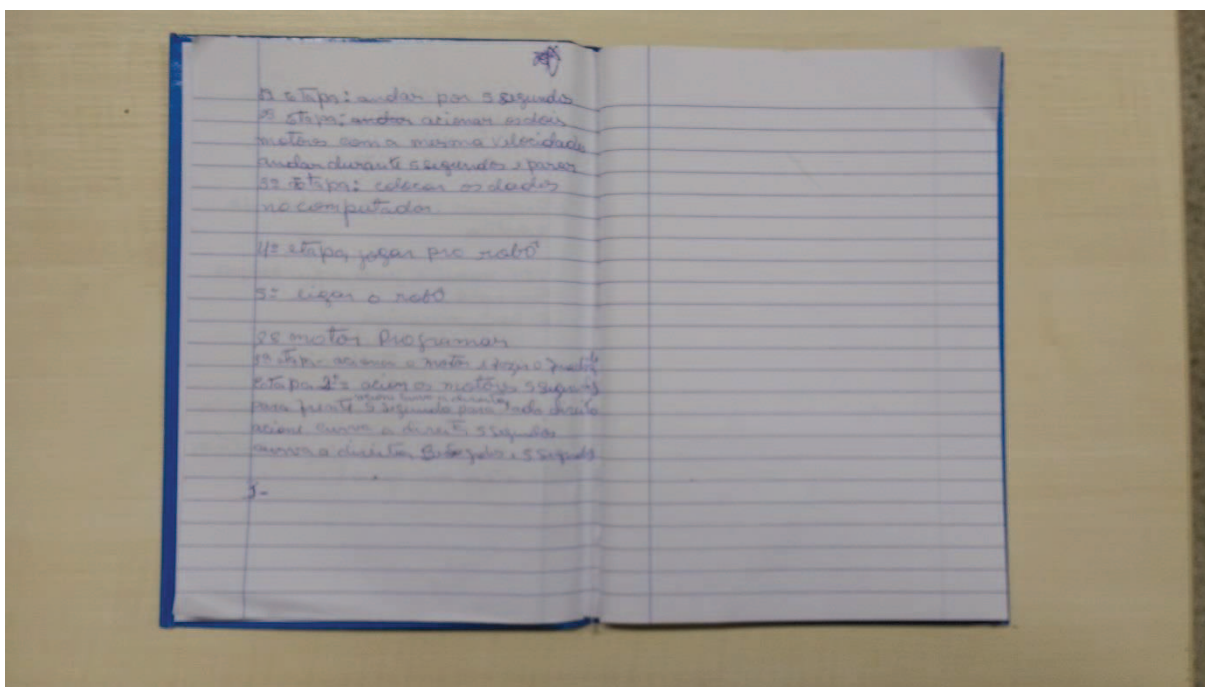 etapa: andar por 5 segundos
etapa: andar acionar os dois
motores com a mesma velocidade
andar durante 5 segundos e parar
3ª Etapa: colocar os dados
no computador.
4ª etapa, jogar pro robô
5ª ligar o robô
motor Programar
1ª etapa acionar o motor e
etapa 2ª os motores 5 segundos
para frente 5 segundo para lado direito
acione curva a direita 5 segundos
curva a direita, e 5 segundos